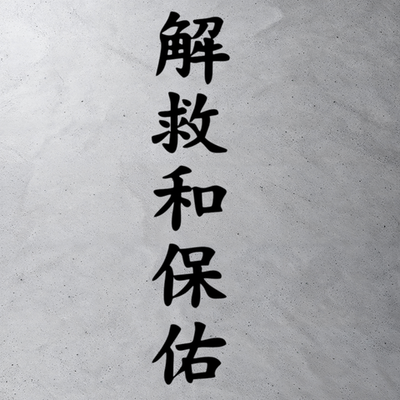 解救和保佑